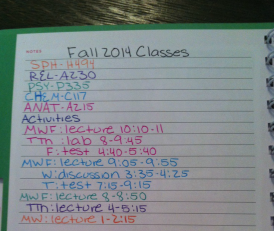 NOTES
Fall 2014 Classes
SPH-H494
REL-A230
PSY-P335
CHEM-C117
ANAT-A215
Activities
MWF: lecture 10:10-11
TTh: lab 8-9:45
F: test 4:40-5:40
MWF: lecture 9:05-9:55
W: discussion 3:35-4:25
T: test 7:15-9:15
MWF: lecture 8-8:50
TTh: lecture 4-5:15
MW: lecture 1-2:15